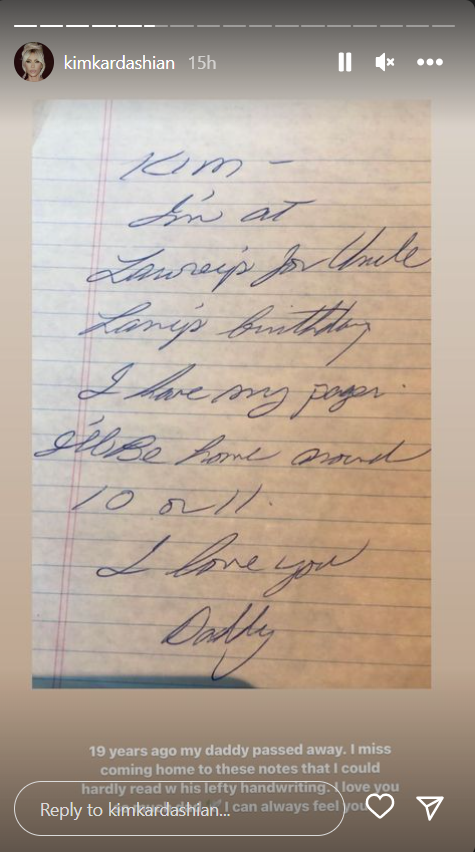 kimkardashian 15h
KIM –
I'm at
Lawry's for Uncle
Larry's birthday
I have my pager.
I'll Be home around
10 or 11.
I love you
Daddy
19 years ago my daddy passed away. I miss
coming home to these notes that I could
hardly read w his lefty handwriting. I love you
I can always feel you
Reply to kimkardashian...